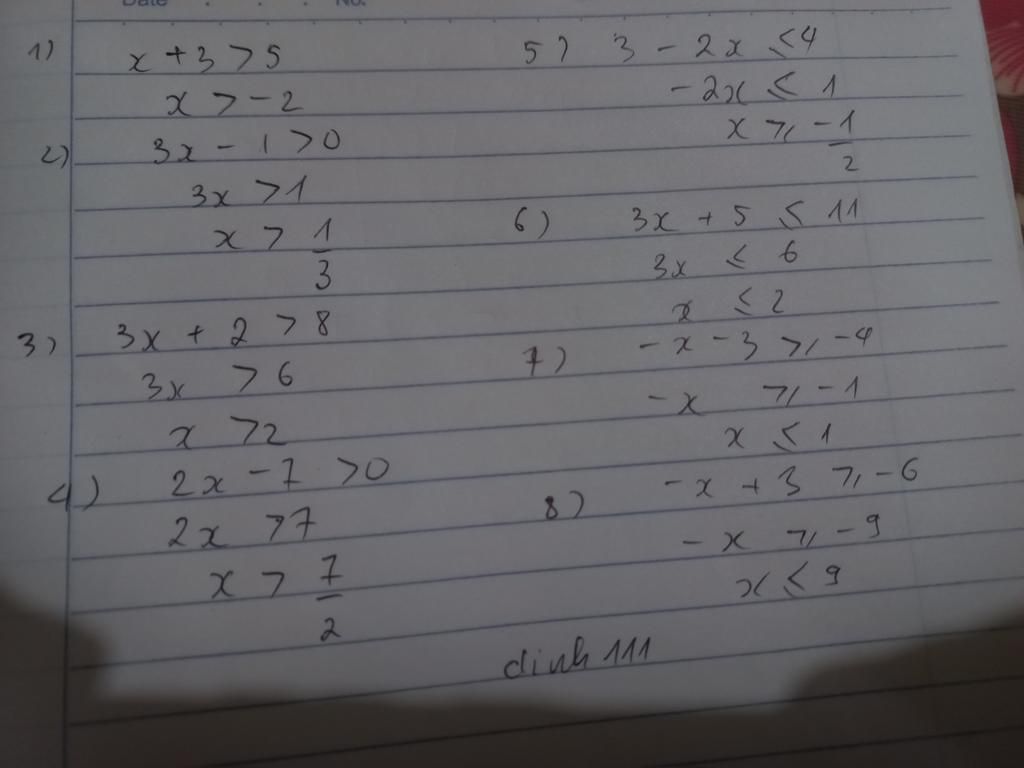 Date . . . No.
1) x + 3 > 5
x > -2
2) 3x - 1 > 0
3x > 1
x > 1/3
3) 3x + 2 > 8
3x > 6
x > 2
4) 2x - 7 > 0
2x > 7
x > 7/2
5) 3 - 2x ≤ 4
-2x ≤ 1
x ≥ -1/2
6) 3x + 5 ≤ 11
3x ≤ 6
x ≤ 2
7) -x - 3 ≥ -4
-x ≥ -1
x ≤ 1
8) -x + 3 ≥ -6
-x ≥ -9
x ≤ 9
dinh 111